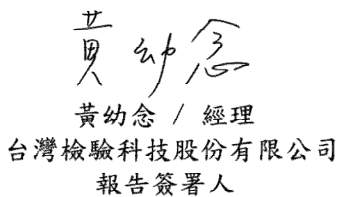 黃幼念
黃幼念 / 經理
台灣檢驗科技股份有限公司
報告簽署人